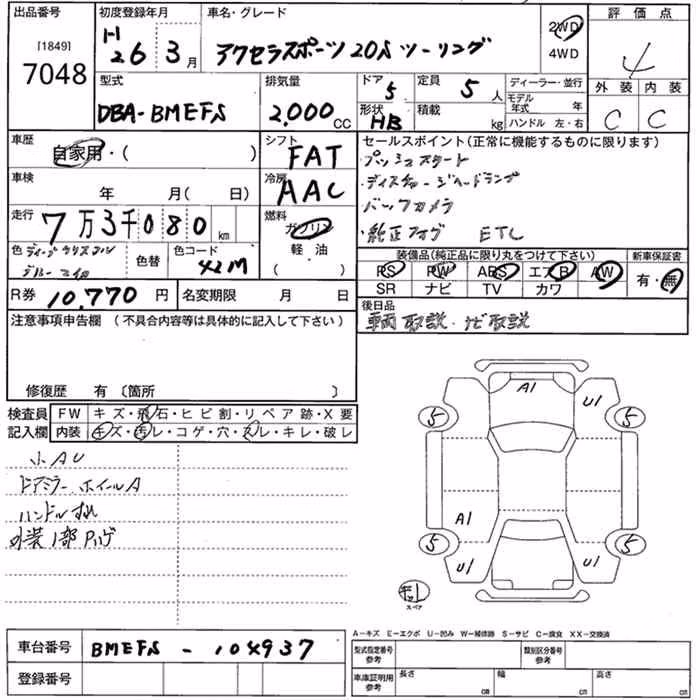 出品番号 初度登録年月 車名・グレード 評価点
[1849] 7048
H 26 3月
アクセラスポーツ20Sツーリング
2WD
4WD
4
外装 内装
C C
型式 排気量 ドア 定員 ディーラー・並行
DBA-BMEFS 2,000cc 5 5人
形状 積載 モデル年式 年
HB kg ハンドル 左・右
車歴 シフト セールスポイント(正常に機能するものに限ります)
自家用・( ) FAT
・プッシュスタート
・ディスチャージヘッドランプ
・バックカメラ
・純正フォグ ETC
車検 年 月( 日) 冷房 AAC
走行 7万3千080km 燃料 ガソリン
軽油
( )
色 ディープクリスタルブルーマイカ 色替 色コード 42M
装備品(純正品に限り丸をつけて下さい) 新車保証書
PS PW ABS エアB AW 有・無
SR ナビ TV カワ
R券 10,770円 名変期限 月 日
後日品
車両取説・ナビ取説
注意事項申告欄(不具合内容等は具体的に記入して下さい)
修復歴 有〔箇所 〕
検査員 FW キズ・飛石・ヒビ割・リペア跡・X要
記入欄 内装 キズ・汚レ・コゲ・穴・スレ・キレ・破レ
小AU
ドアミラー ホイールA
ハンドルすれ
外装1部Pハゲ
A1 U1
5 5
A1
5 5
U1 U1
スペア
A-キズ E-エクボ U-凹み W-補修跡 S-サビ C-腐食 XX-交換済
車台番号 BMEFS - 104937
型式指定番号 参考 類別区分番号 参考
登録番号
車庫証明用 参考 長さ cm 幅 cm 高さ cm